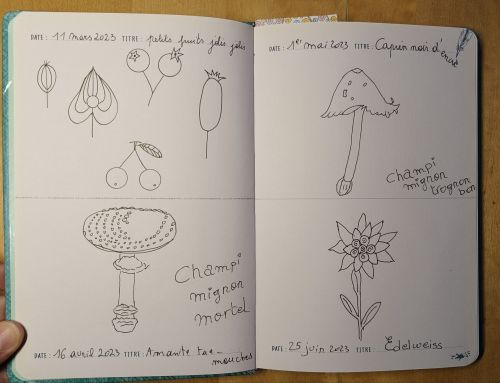 DATE : 11 mars 2023 TITRE : petits fruits jolis jolis
Champi
mignon
mortel
DATE : 16 avril 2023 TITRE : Amanite tue-
mouches
DATE : 1er mai 2023 TITRE : Coprin noir d'
encre
Champi
mignon
trognon
bon
DATE : 25 juin 2023 TITRE : Edelweiss